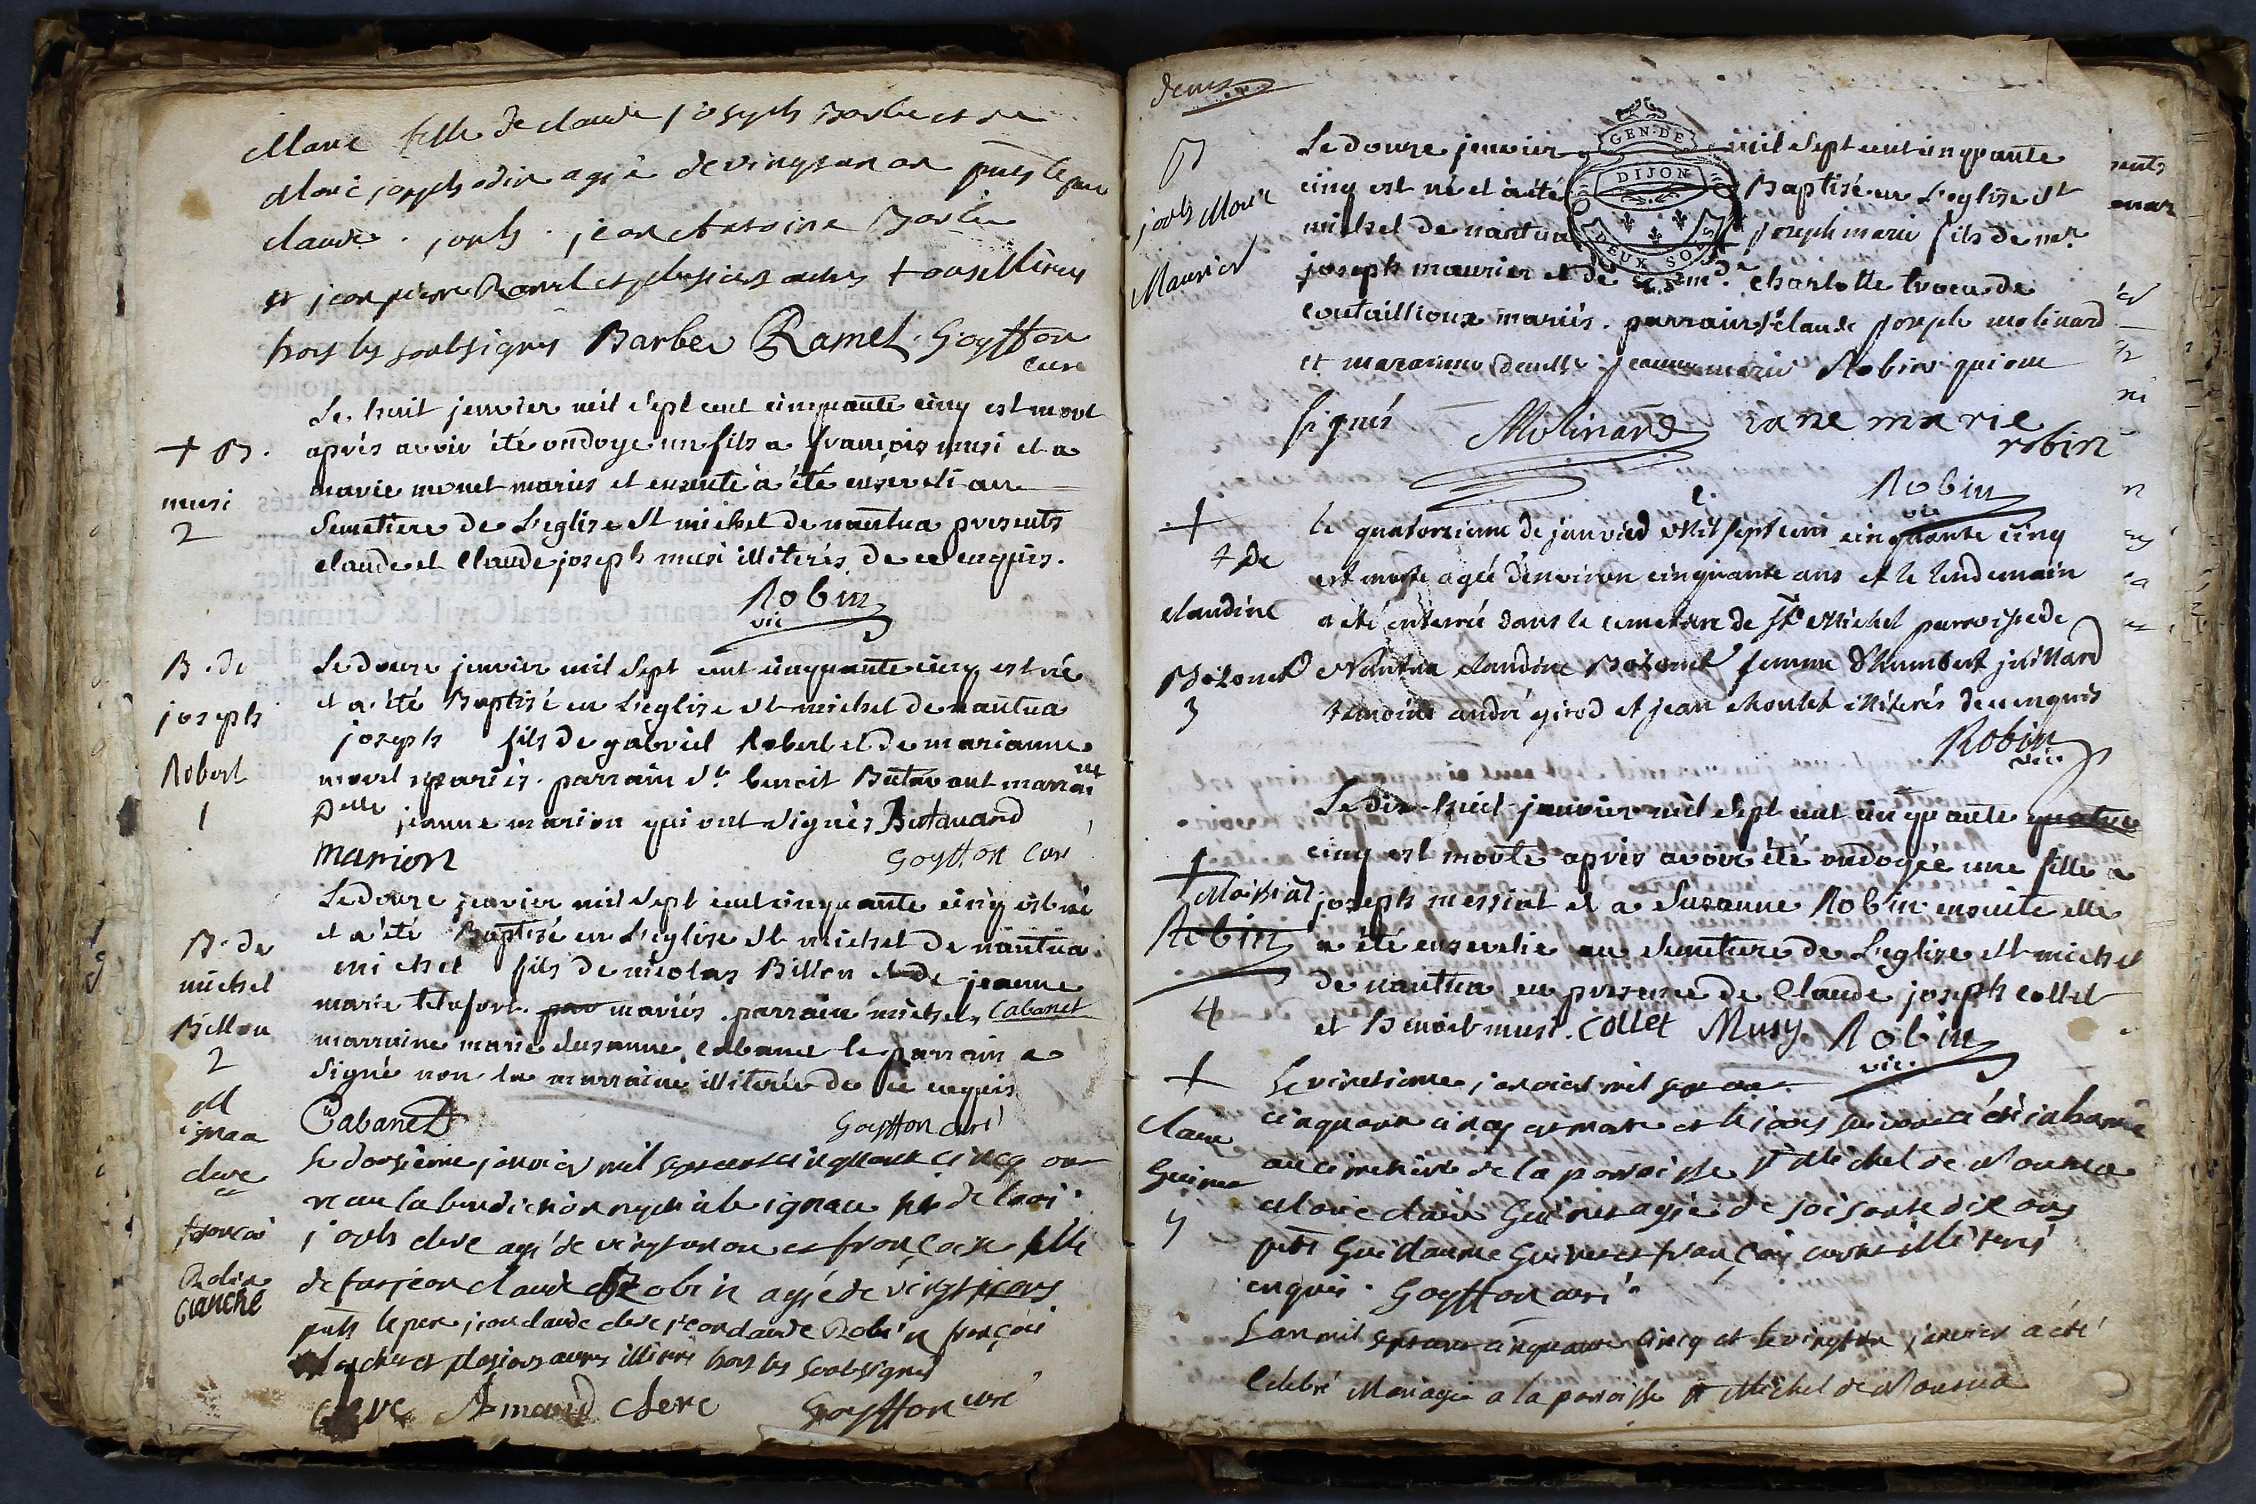 Marie fille de claude joseph Barbe et de
Marie joseph odin agée de vingt un an pnts le pere
claude . joseph . jean Antoine Barbe
et jean pierre Ramel et plusieurs autres tous illiteres
hors les soubsignés Barbe Ramel Goyffon
curé
Le huit janvier mil sept cent cinquante cinq est mort
+ B. après avoir été ondoye un fils a françois musi et a
musi marie monet mariés et ensuite à été enseveli au
2 Semetiere de L'eglise St michel de nantua presents
claude et Claude joseph musi illiterés de ce enquis.
Robin
vic
B. de Le douze janvier mil sept cent cinquante cinq est né
et a été Baptisé en L'eglise St michel de nantua
joseph joseph fils de gabriel Robert et de marianne
Robert morel mariés. parrain Sr. benoit Butavant marraine
1 Delle jeanne marion qui ont signés Butavand
marion Goyffon curé
Le douze janvier mil sept cent cinquante cinq est né
B. de et a été Baptisé en L'eglise St michel de nantua.
michel michel fils de nicolas Billon et de jeanne
Billon marie letufort. par mariés. parrain michel Cabanet
2 marraine marie Susanne Cabanet le parrain a
signé non la marraine illiterée de ce enquis
Cabanet Goyffon curé
M
ignace Le douzieme janvier mil sept cent cinquante cinq ont
clerc receu la benediction nuptiale ignace fils de
françoise joseph clerc agé de vingt un an et françoise fille
Robin de fut jean claude Robin agée de vingt
blanche pnts le pere jean claude clerc jean claude Robin françois
et plusieurs autres illiterés hors les soubsignés
clerc Armand clerc Goyffon curé
deux
GEN. DE DIJON
DEUX SOLS
B Le douze janvier mil sept cent cinquante
joseph Marie cinq est né et a été Baptisé en L'eglise St
michel de nantua joseph marie fils de mr.
Maurier joseph maurier et de md.e charlotte trocu de
coutaillioux mariés. parrain Sr claude joseph molinard
et marainne demlle jeanne marie Robin qui ont
signés Molinard iane marie
robin
Robin
vic
+ le quatorzieme de janvier Mil sept cent cinquante cinq
+ de est morte agée d'environ cinquante ans et le lendemain
claudine a été enterrée dans le cemetiere de St Michel parroisse de
Bozonet Nantua claudine Bozonet femme d'humbert juillard
3 temoins andré girod et jean Moulet illiterés de ce enquis
Robin
vic.
Le dix-huit janvier mil sept cent cinquante quatre
+ cinq est morte après avoir été ondoyée une fille a
Moissiat joseph messiat et a Susanne Robin ensuite elle
Robin a été ensevelie au Semetiere de L'eglise St michel
de nantua en presence de Claude joseph collet
4 et Benoit musi. collet Musy Robin
vic.
+ Le vintieme janvier mil sept cent
Claire cinquante cinq est morte et le jour suivant a été inhumée
Guinet au cimetiere de la paroisse St Michel de Nantua
5 Marie claire Guinet agée de soisante dix ans
pnts Guillaume Guinet et françois illiterés
enquis. Goyffon curé
L'an mil sept cent cinquante cinq et le vingt janvier a été
Celebré Mariage a la paroisse St Michel de Nantua